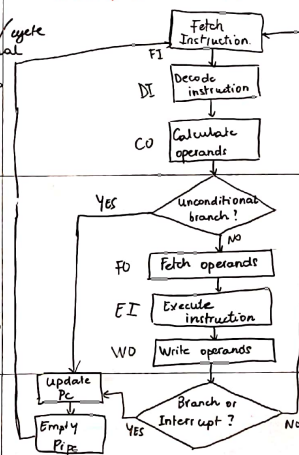 / cycle
Fetch
Instruction.
FI
DI
Decode
instruction
CO
Calculate
operands
YES
Unconditional
branch?
NO
FO
Fetch operands
EI
Execute
instruction
WO
Write operands
Update
PC
YES
Branch or
Interrupt?
NO
Empty
Pipe